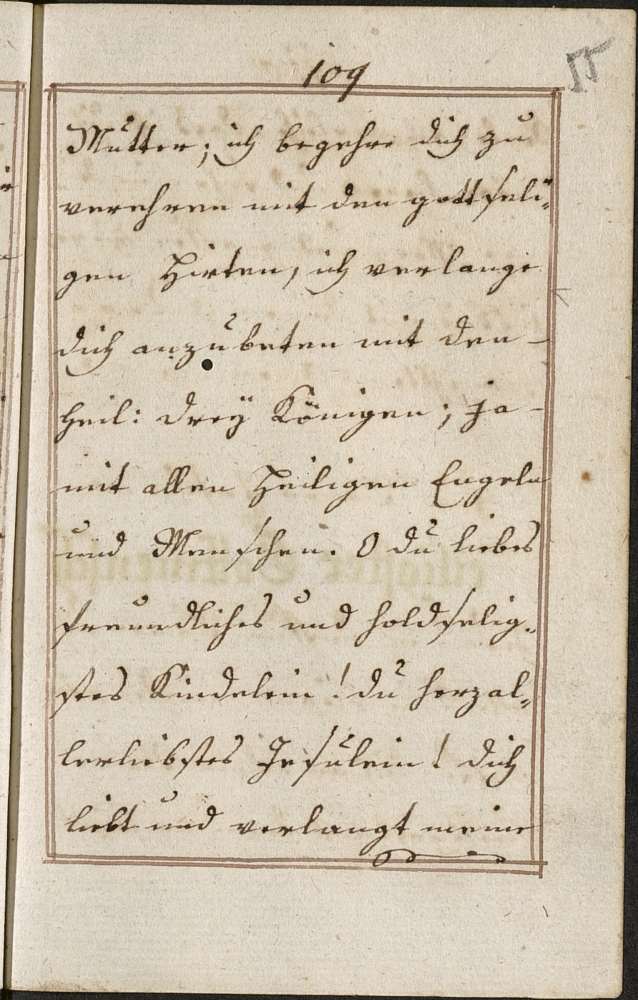 109
Mutter; ich begehre dich zu
verehren mit den gottseli„
gen Hirten, ich verlange
dich anzubeten mit den
heil: drey Königen; ja
mit allen heiligen Engeln
und Menschen. O du liebes
freundliches und holdselig„
stes Kindelein! du herzal„
lerliebstes Jesulein! dich
liebt und verlangt meine